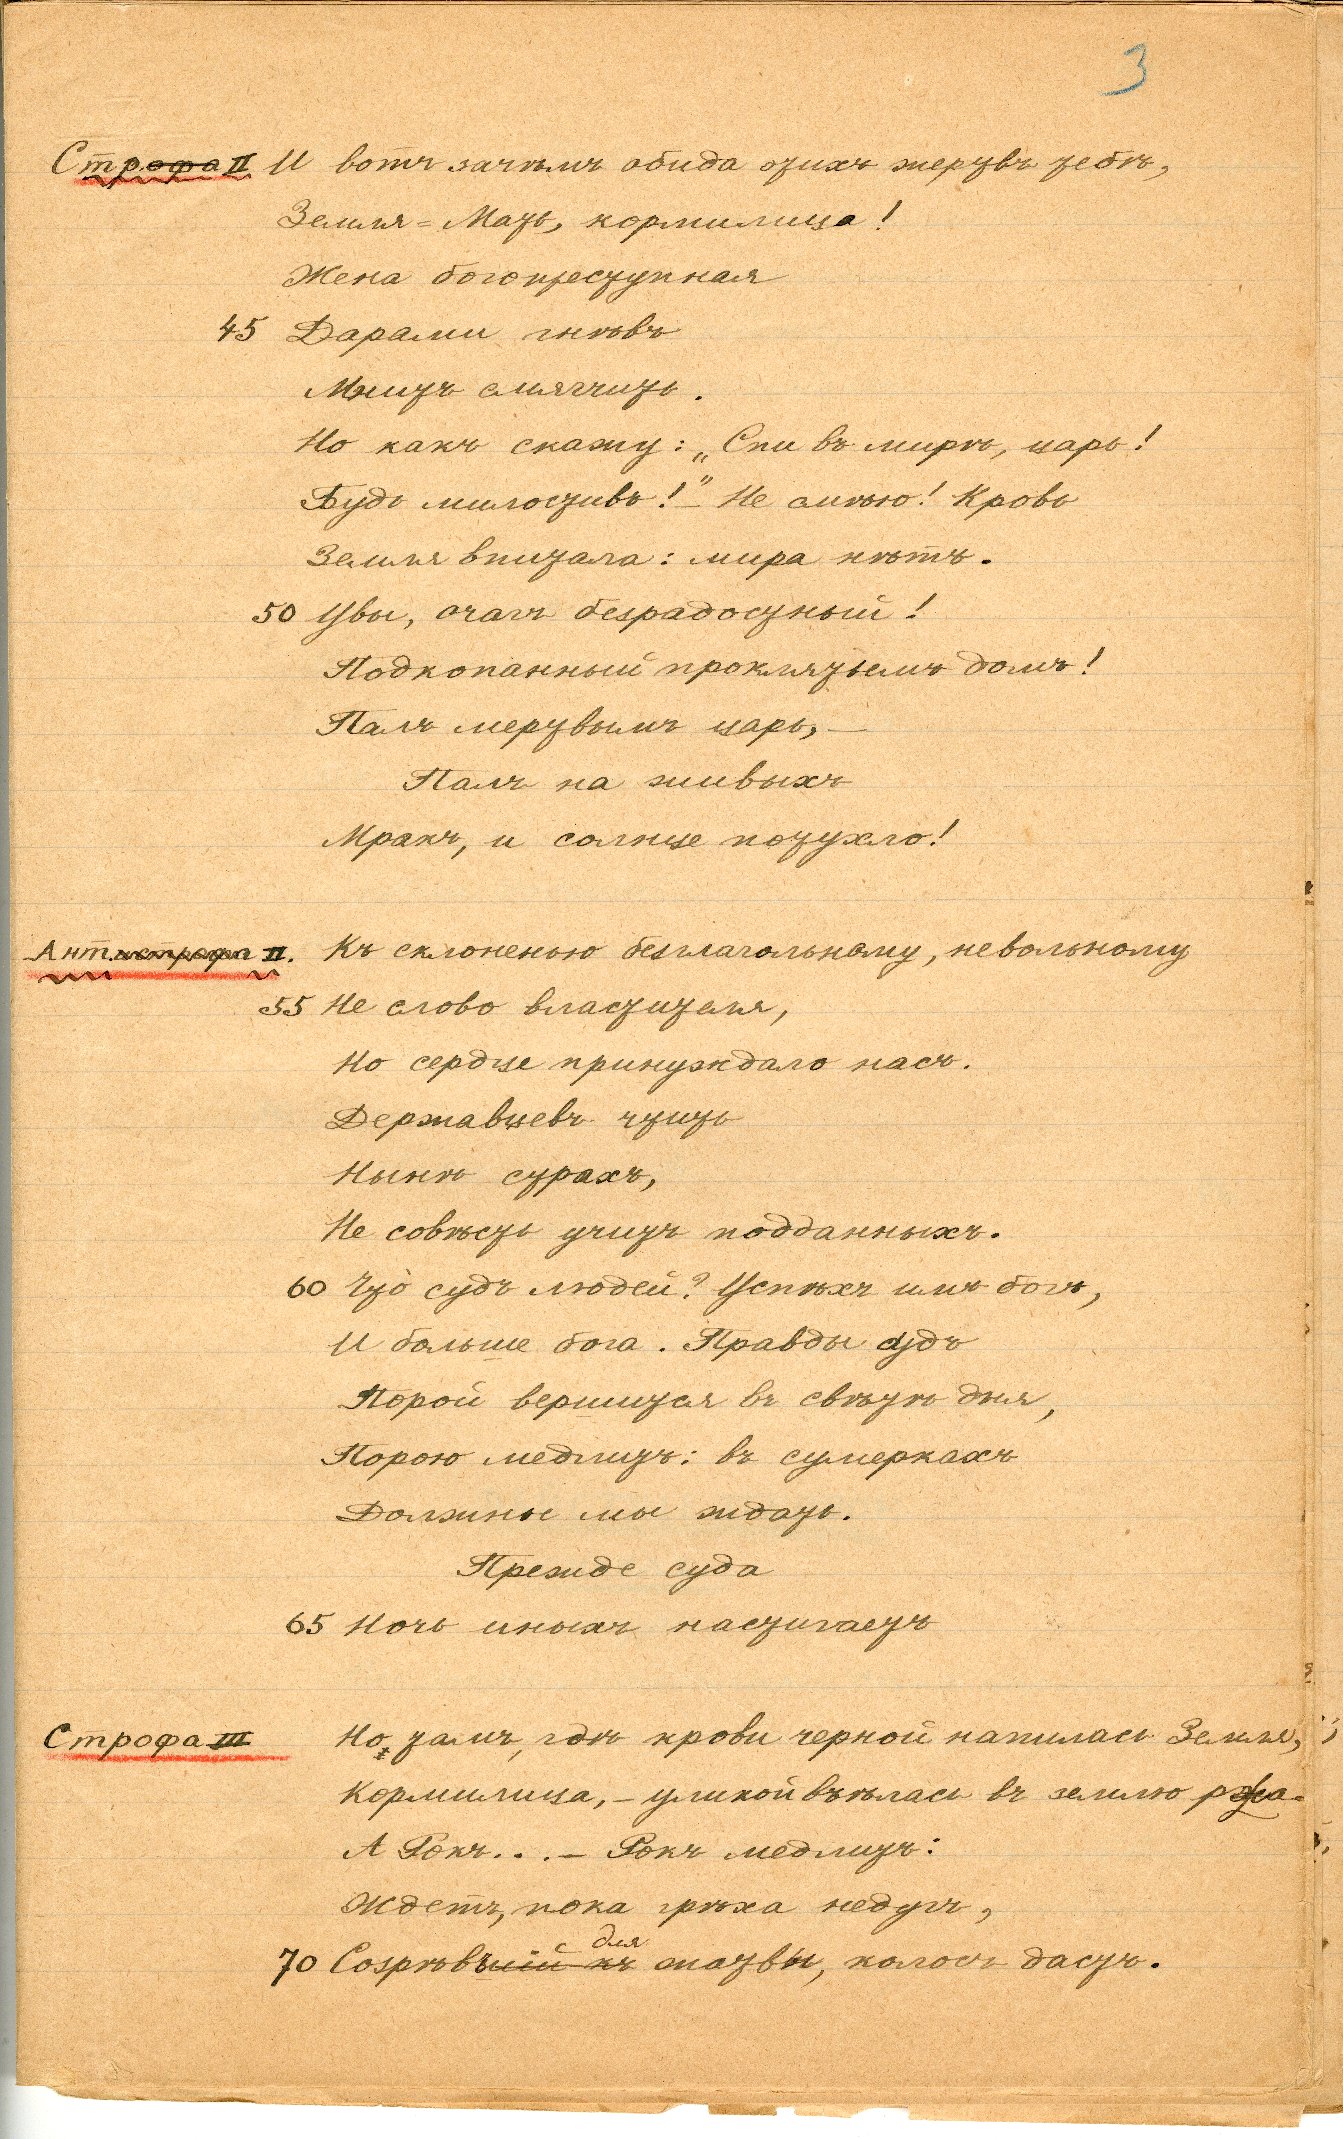 3
Строфа II И вотъ зачѣмъ обида этихъ жертвъ тебѣ,
Земля-Мать, кормилица!
Жена богопреступная
45 Дарами гнѣвъ
Мнитъ смягчить.
Но какъ скажу: „Спи въ мирѣ, царь!
Будь милостивъ!" – Не смѣю! Кровь
Земля впитала: мира нѣтъ.
50 Увы, очагъ безрадостный!
Подкопанный проклятьемъ домъ!
Палъ мертвымъ царь, –
Палъ на живыхъ
Мракъ, и солнце потухло!
Антистрофа II. Къ склоненью безглагольному, невольному
55 Не слово властителя,
Но сердце принуждало насъ.
Державцевъ чтить
Нынѣ страхъ,
Не совѣсть учитъ подданныхъ.
60 Что̀ судъ людей? Успѣхъ имъ богъ,
И больше бога. Правды судъ
Порой вершится въ свѣтѣ дня,
Порою медлитъ: въ сумеркахъ
Должны мы ждать.
Прежде суда
65 Ночь иныхъ настигаетъ
Строфа III Но тамъ, гдѣ крови черной напилась Земля,
Кормилица, – уликой въѣлась въ землю ржа.
А Рокъ... – Рокъ медлитъ:
Ждетъ, пока грѣха недугъ,
для
70 Созрѣвъшій къ жатвы, колосъ дастъ.